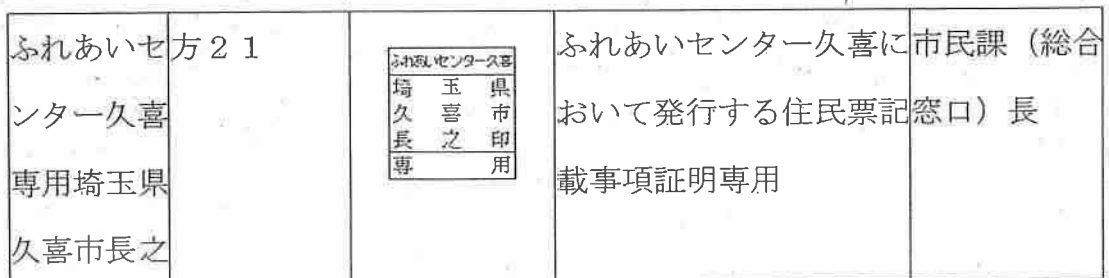 ふれあいセ
ンター久喜
専用埼玉県
久喜市長之
方21
ふれあいセンター久喜
埼玉県
久喜市
長之印
専用
ふれあいセンター久喜に
おいて発行する住民票記
載事項証明専用
市民課（総合
窓口）長